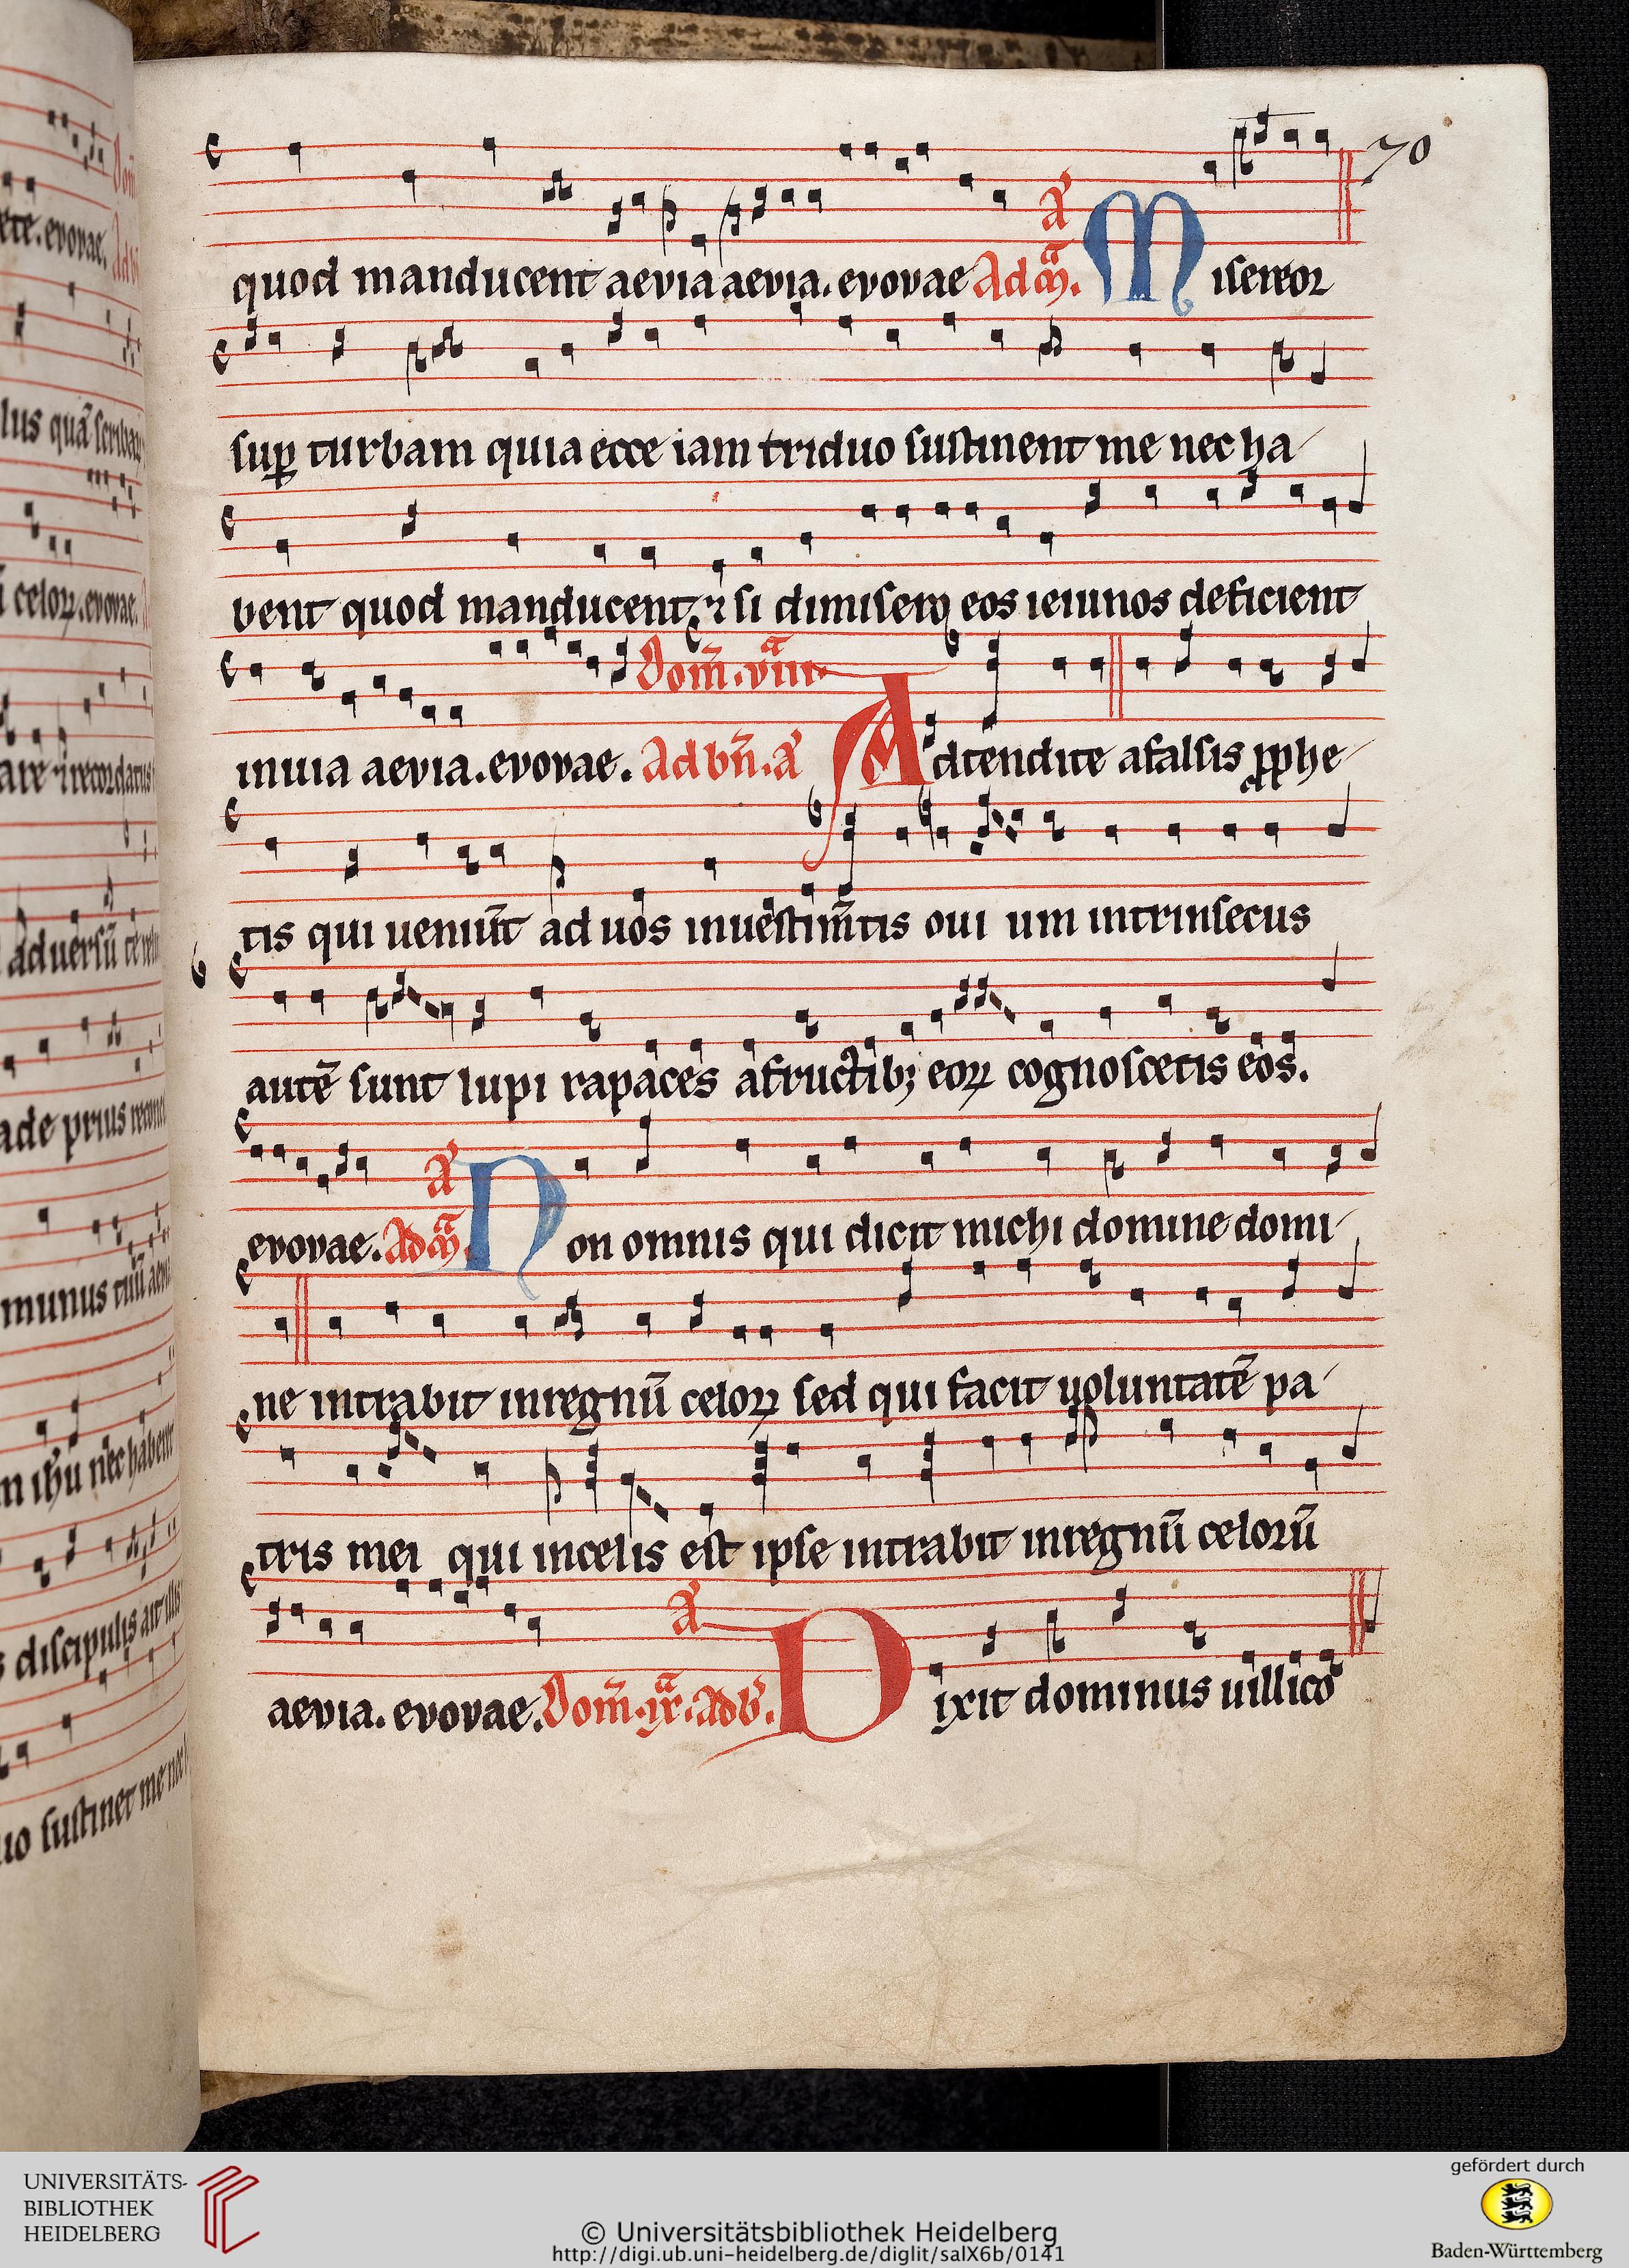 70
quod manducent aevia aevia. evovae Ad m̄a. a͛ Misereor
suꝑ turbam quia ecce iam triduo sustinent me nec ha
bent quod manducent ⁊ si dimisero eos ieiunos deficient
in uia aevia. evovae. Dom̄. viiia Ad bn̄. a͛ Adtendite a falsis ꝓphe
tis qui ueniūt ad uos in uestim̄tis oui um intrinsecus
autē sunt lupi rapaces a fructibꝫ eoꝝ cognoscetis eos.
evovae. Ad m̄a. a͛ Non omnis qui dicit michi domine domi
ne intrabit in regnū celoꝝ sed qui facit uoluntatē pa
tris mei qui in celis est ipse intrabit in regnū celorū
aevia. evovae. Dom̄. ixa. ad b͛. a͛ Dixit dominus uillico
UNIVERSITÄTS-
BIBLIOTHEK
HEIDELBERG
© Universitätsbibliothek Heidelberg
http://digi.ub.uni-heidelberg.de/diglit/salX6b/0141
gefördert durch
Baden-Württemberg